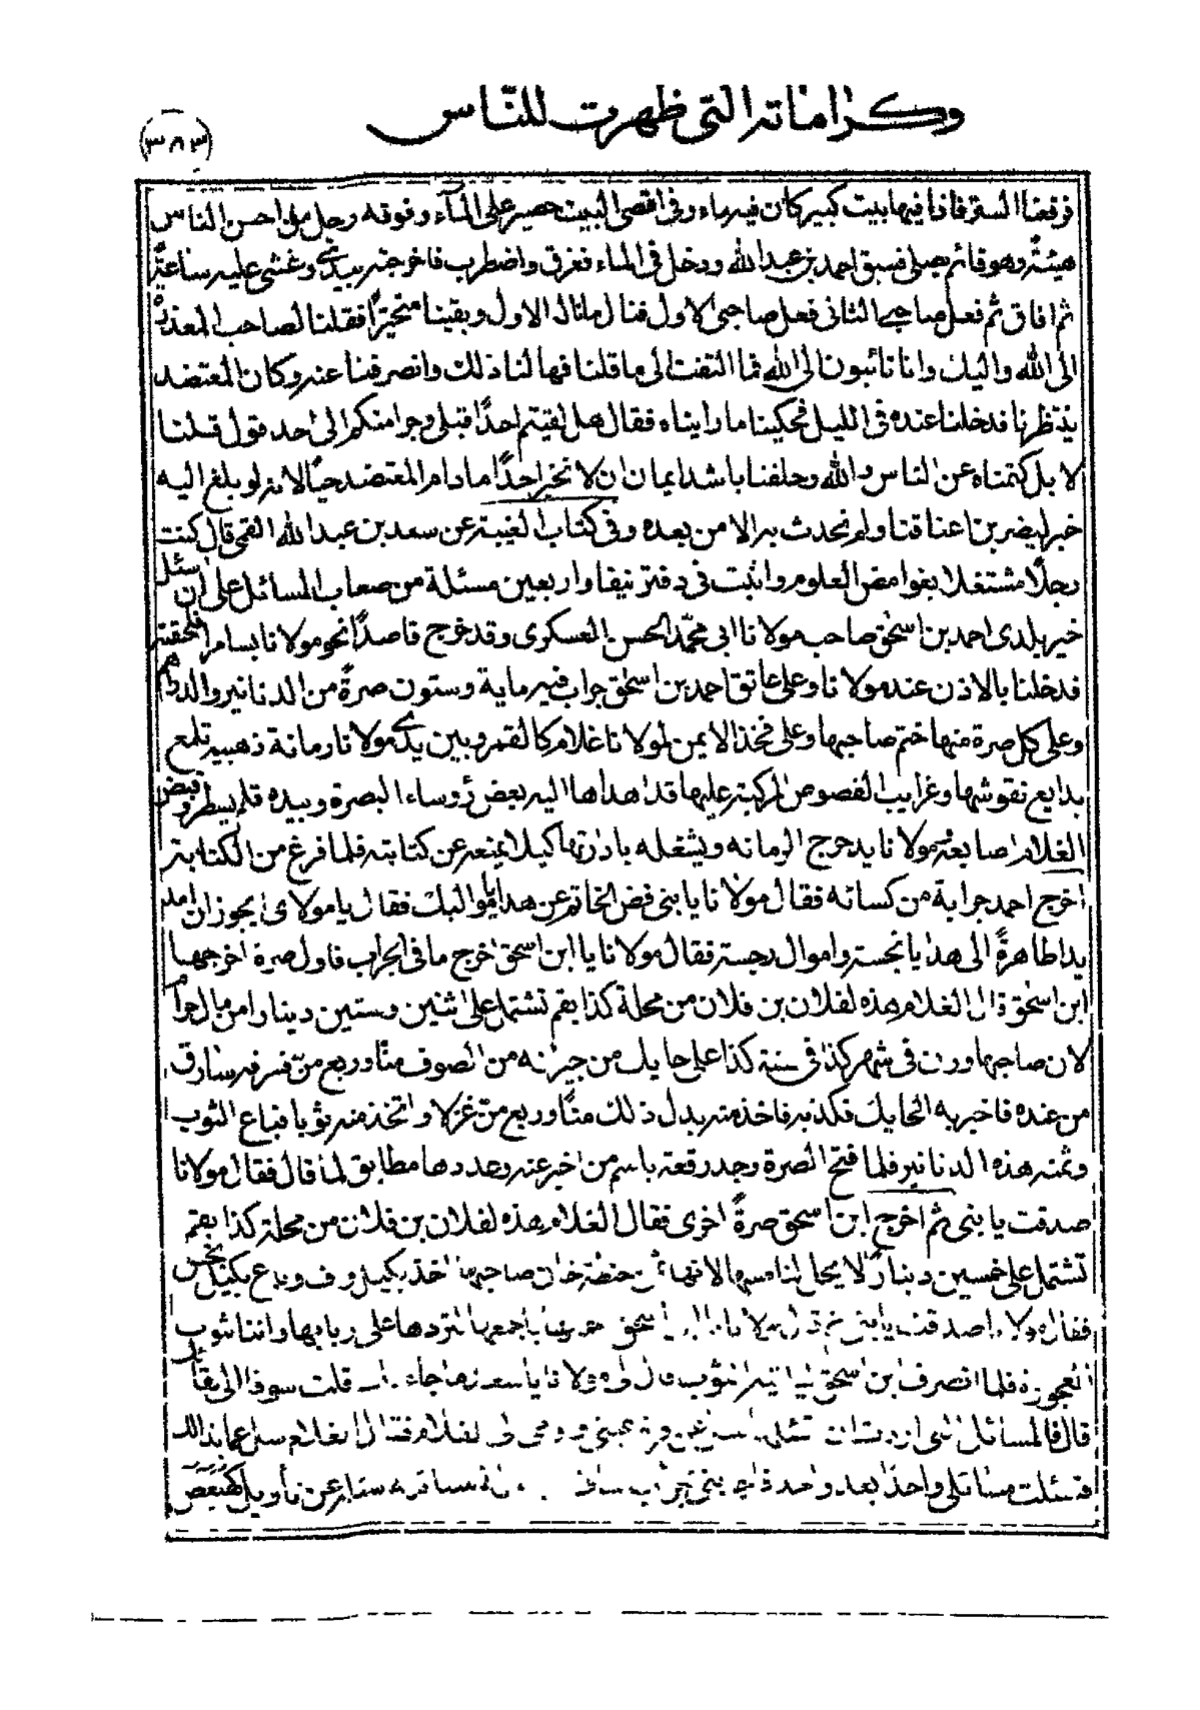 وكراماته التي ظهرت للناس
(٣٨٣)
فرفعنا الستر فاذا فيها بيت كبير كان فيه ماء وفي اقصى البيت حصير على المآء وفوقه رجل من احسن الناس
هيئة وهو قائم يصلي فسبق احمد بن عبد الله ودخل في الماء فغرق واضطرب فاخرجته بيدي وغشي عليه ساعة
ثم افاق ثم فعل صاحبي الثاني فعل صاحبي الاول فنال ما نال الاول وبقينا متحيرا فقلنا لصاحب المعذرة
الى الله واليك وانا تائبون الى الله فما التفت الى ما قلنا فهالنا ذلك وانصرفنا عنه وكان المعتضد
ينتظرنا فدخلنا عنده في الليل فحكينا ما رايناه فقال هل لقيتم احدًا قبلي وجرا منكم الى احد قول قلنا
لا بل كتمناه عن الناس والله وحلفنا باشد ايمان ان لا نخبر احدًا ما دام المعتضد حيًا لانه لو بلغ اليه
خبر ليضربن اعناقنا ولم نحدث به الا من بعده وفي كتاب الغيبة عن سعد بن عبد الله القمي قال كنت
رجلًا مشتغلا بغوامض العلوم واثبت في دفتر نيفا واربعين مسئلة من صعاب المسائل على ان اسئل
خير بلدي احمد بن اسحق صاحب مولانا ابي محمد الحسن العسكري وقد خرج قاصدًا نحو مولانا بسامرا فلحقته
فدخلنا بالاذن عند مولانا وعلى عاتق احمد بن اسحق جراب فيه ماية وستون صرة من الدنانير والدراهم
وعلى كل صرة منها ختم صاحبها وعلى فخذ الايمن لمولانا غلام كالقمر وبين يدي مولانا رمانة ذهبية تلمع
بدايع نقوشها وغرايب الفصوص المركبة عليها قد اهداها اليه بعض رؤساء البصرة وبيده قلم يسطر وقبض
الغلام اصابعه مولانا يدحرج الرمانه ويشغله بادارتها كيلا يمنعه عن كتابته فلما فرغ من الكتابة
اخرج احمد جرابة من كسائه فقال مولانا يا بني فض الخاتم عن هدايا مواليك فقال يا مولاي ايجوز ان امد
يدا طاهرةً الى هدايا نجسة واموال رجسة فقال مولانا يا ابن اسحق اخرج ما في الجراب فاول صرة اخرجها
ابن اسحق قال الغلام هذه لفلان بن فلان من محلة كذا بقم تشتمل على اثنين وستين دينارا من مال حرام
لان صاحبها وزن في شهر كذا في سنة كذا على حايك من جيرانه من الصوف منًا وربع من فسرقه سارق
من عنده فاخبر به الحايك فكذبه فاخذ منه بدل ذلك منًا وربع من غزلا واتخذ منه ثوبا فباع الثوب
وثمنه هذه الدنانير فلما فتح الصرة وجد رقعة باسم من اخبر عنه وعددها مطابق لما قال فقال مولانا
صدقت يا بني ثم اخرج ابن اسحق صرةً اخرى فقال الغلام هذه لفلان بن فلان من محلة كذا بقم
تشتمل على خمسين دينارًا لا يحل لنا مسها لانها ثمن حنطة خان صاحبها اخذ بكيل وف وباع بكيل بخس
فقال مولانا صدقت يا بني اسحق باجمعها لتردها على ربابها واتنا بثوب
العجوزة فلما انصرف بن اسحق لياتيه الثوب قال مولانا يا سعد ما جاء بك قلت سوقا الى لقائك
قال فالمسائل التي اردت ان تسئل عن قرة عيني واومى الى الغلام فقال الغلام سل عما بدا لك
فسئلت مسائلي واحدًا بعد واحد عن تأويل كهيعص